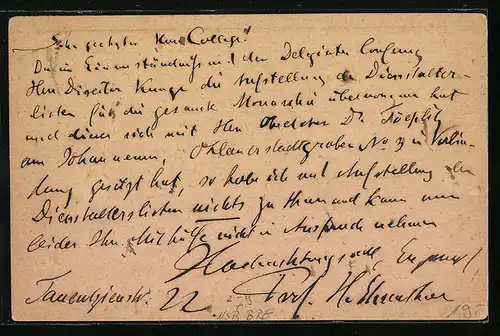 Sehr geehrter Herr College!
Da im Einverständniss mit der Delegirten Conferenz
Herr Director Kunze die Aufstellung der Dienstalter-
listen für die gesamte Monarchie übernommen hat
und dieser sich mit Herr Oberlehrer Dr. Toeplitz
am Johanneum, Ohlauerstadtgraben No in Verbin-
dung gesetzt hat, so habe ich mit Aufstellung der
Dienstalterslisten nichts zu thun und kann nun
leider Ihre Mithülfe nicht in Anspruch nehmen
Hochachtungsvoll
Tauentzienstr. 22 Prof. H.
195